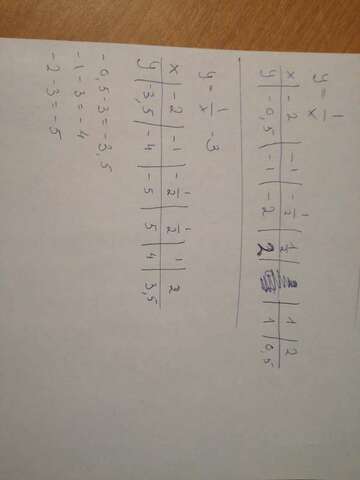 y = 1/x
x | -2 | -1 | -1/2 | 1/2 | 1 | 2
y | -0,5 | -1 | -2 | 2 | 1 | 0,5
y = 1/x - 3
x | -2 | -1 | -1/2 | 1/2 | 1 | 2
y | -3,5 | -4 | -5 | 5 | 4 | 3,5
-0,5-3=-3,5
-1-3=-4
-2-3=-5